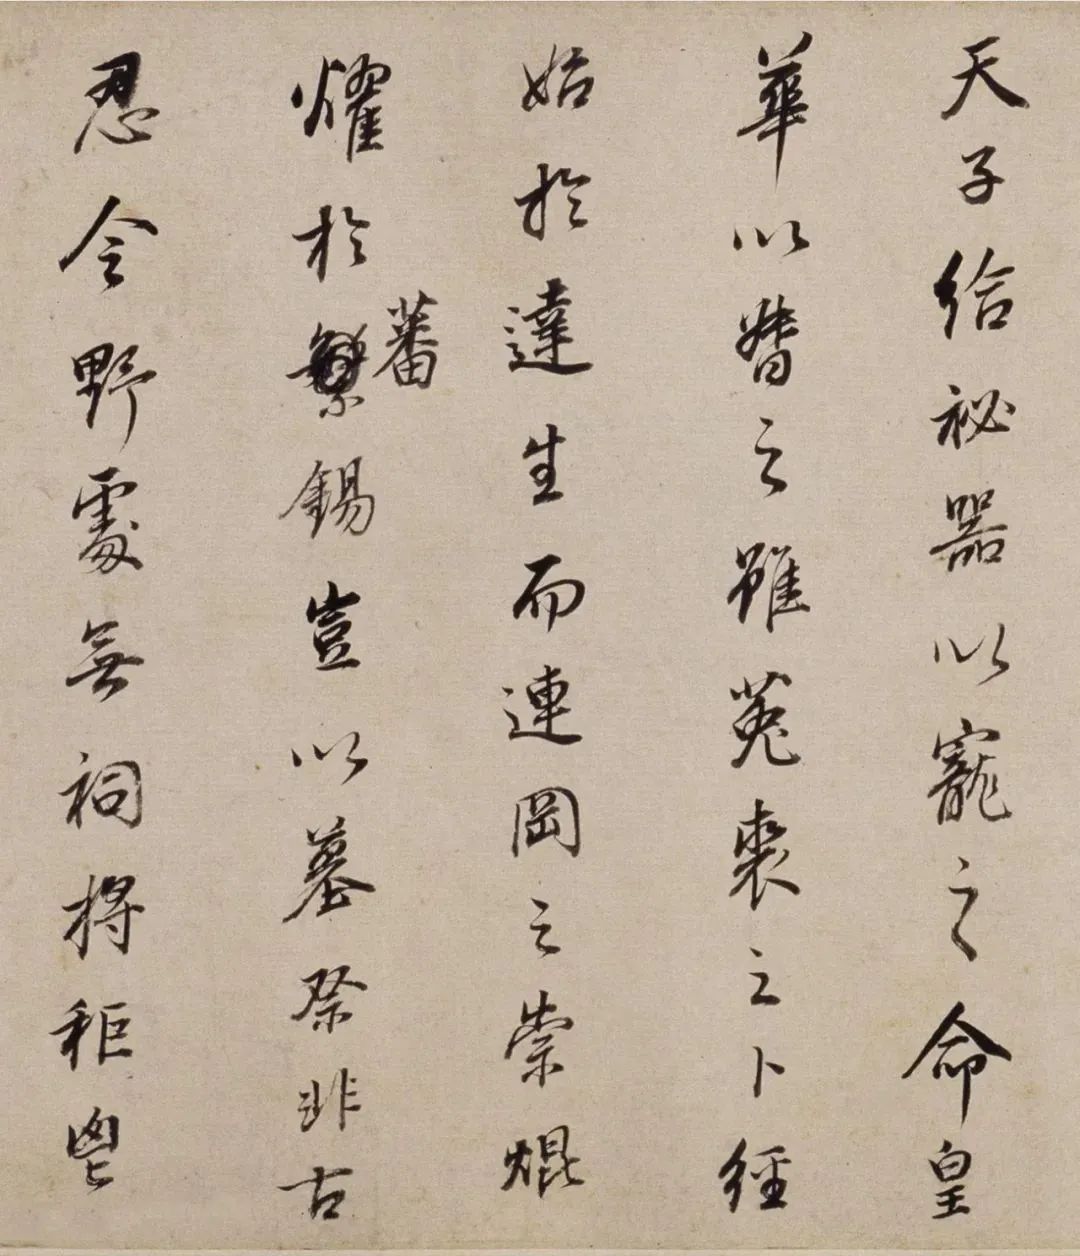 天子給祕器以寵之命皇
華以督之雖菟裘之卜經
始於達生而連岡之崇焜
燿於繁蕃錫豈以墓祭非古
忍令野處無祠將秬鬯